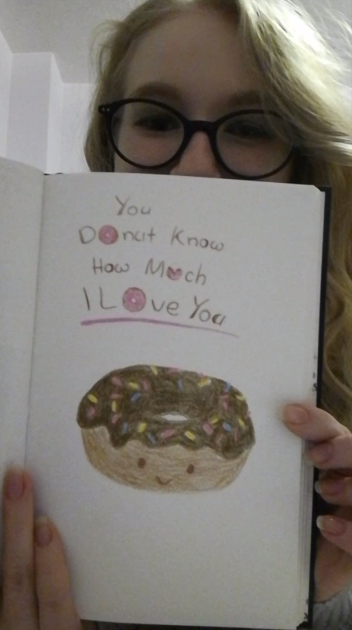 You
Donut Know
How Much
I Love You